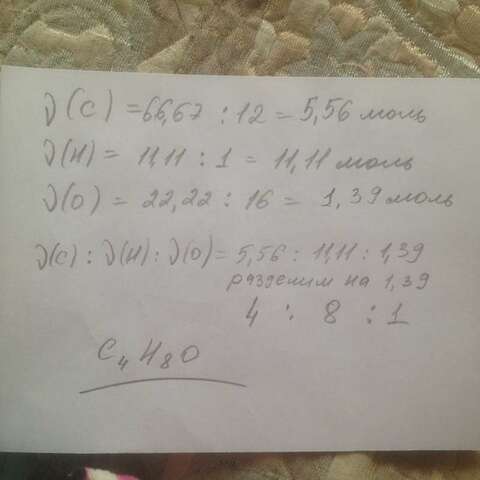 ν(C) = 66,67 : 12 = 5,56 моль
ν(H) = 11,11 : 1 = 11,11 моль
ν(O) = 22,22 : 16 = 1,39 моль
ν(C) : ν(H) : ν(O) = 5,56 : 11,11 : 1,39
разделим на 1,39
4 : 8 : 1
C₄H₈O